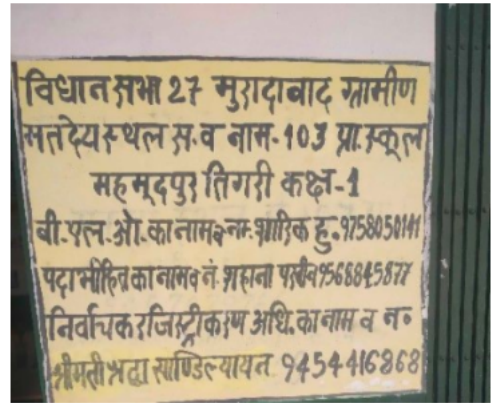 विधान सभा 27 मुरादाबाद ग्रामीण
मतदेय स्थल स. व नाम - 103 प्रा. स्कूल
महमूदपुर तिगरी कक्ष - 1
बी. एल. ओ. का नाम व नम. शारिक हु. 9758050141
पदाभिहित का नाम व नं. शहाना परवीन 9568845877
निर्वाचक रजिस्ट्रीकरण अधि. का नाम व न०
श्रीमती श्रद्धा साण्डिल्यायन 9454416868